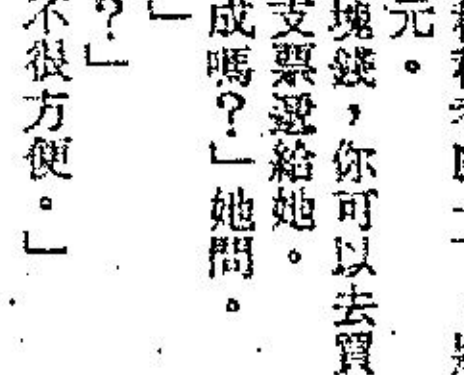 元。
塊錢，你可以去買
支票還給她。
成嗎？」她問。
」
？」
不很方便。」